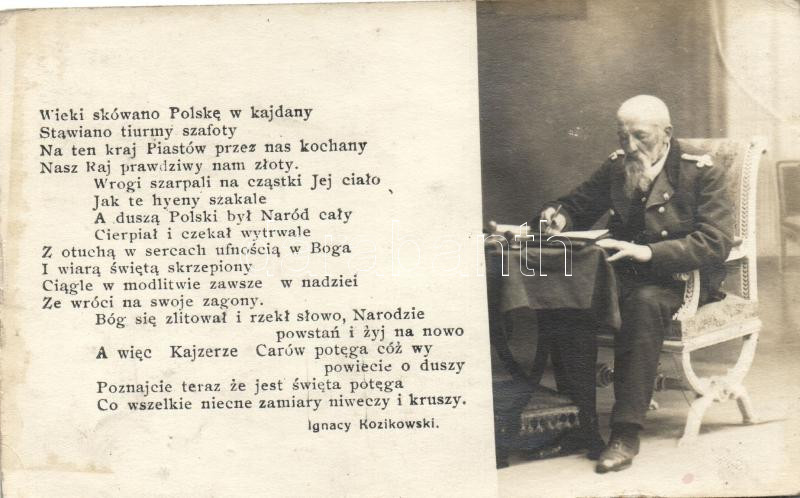 Wieki skówano Polskę w kajdany
Stawiano tiurmy szafoty
Na ten kraj Piastów przez nas kochany
Nasz Raj prawdziwy nam złoty.
Wrogi szarpali na cząstki Jej ciało
Jak te hyeny szakale
A duszą Polski był Naród cały
Cierpiał i czekał wytrwale
Z otuchą w sercach ufnością w Boga
I wiarą świętą skrzepiony
Ciągle w modlitwie zawsze w nadziei
Że wróci na swoje zagony.
Bóg się zlitował i rzekł słowo, Narodzie
powstań i żyj na nowo
A więc Kajzerze Carów potęga cóż wy
powiecie o duszy
Poznajcie teraz że jest święta potęga
Co wszelkie niecne zamiary niweczy i kruszy.
Ignacy Kozikowski.